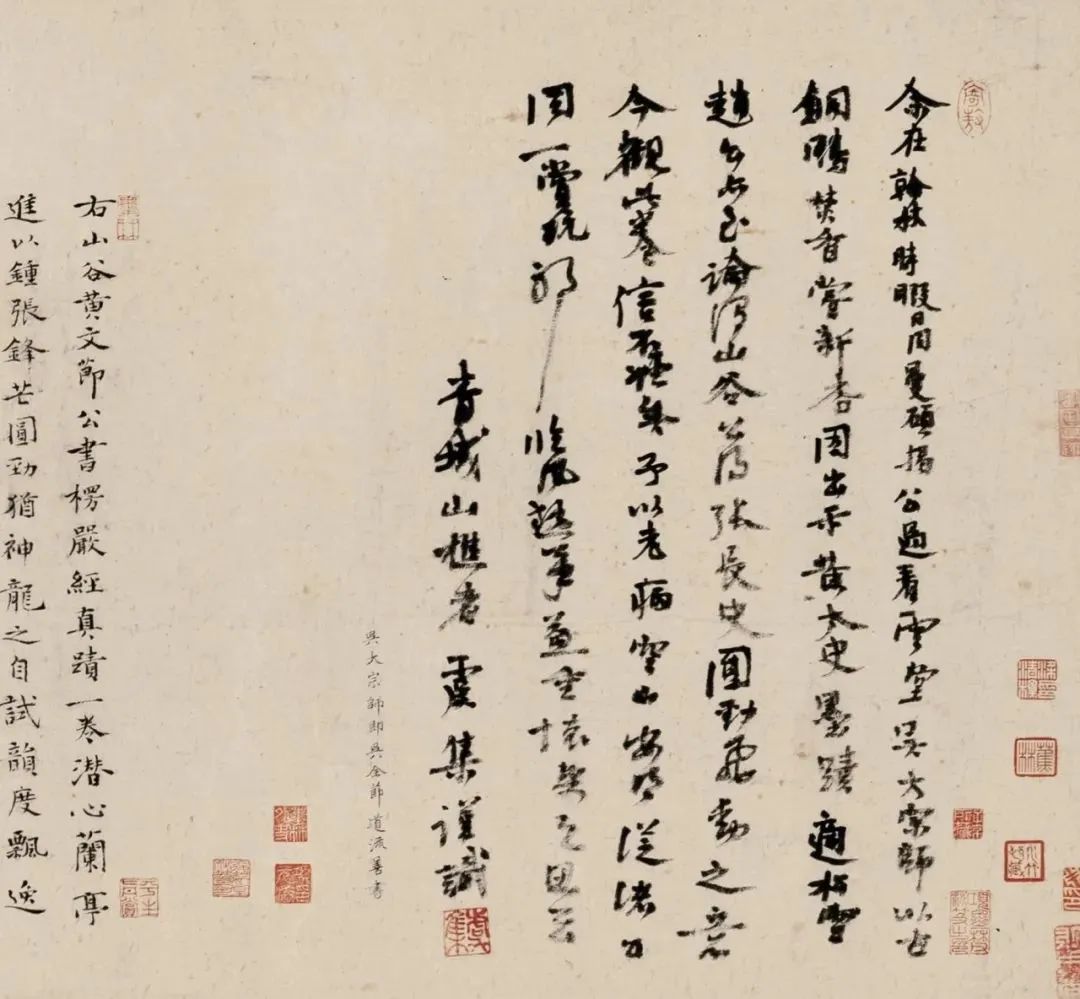 余在翰林時暇日同曼碩揭公過看雲堂吳大宗師以古
銅鴨焚香嘗新杏因出示黃太史墨蹟適松雪
趙公亦至論山谷公得張長史圓勁飛動之意
今觀此卷信不誣矣予以老病空山安得從諸公
同一賞玩耶臨風執筆益重懷之思云
青城山樵者虞集謹識
吳大宗師即吳全節道流善書
右山谷黃文節公書楞嚴經真蹟一卷潛心蘭亭
進以鍾張鋒芒圓勁猶神龍之自試韻度飄逸